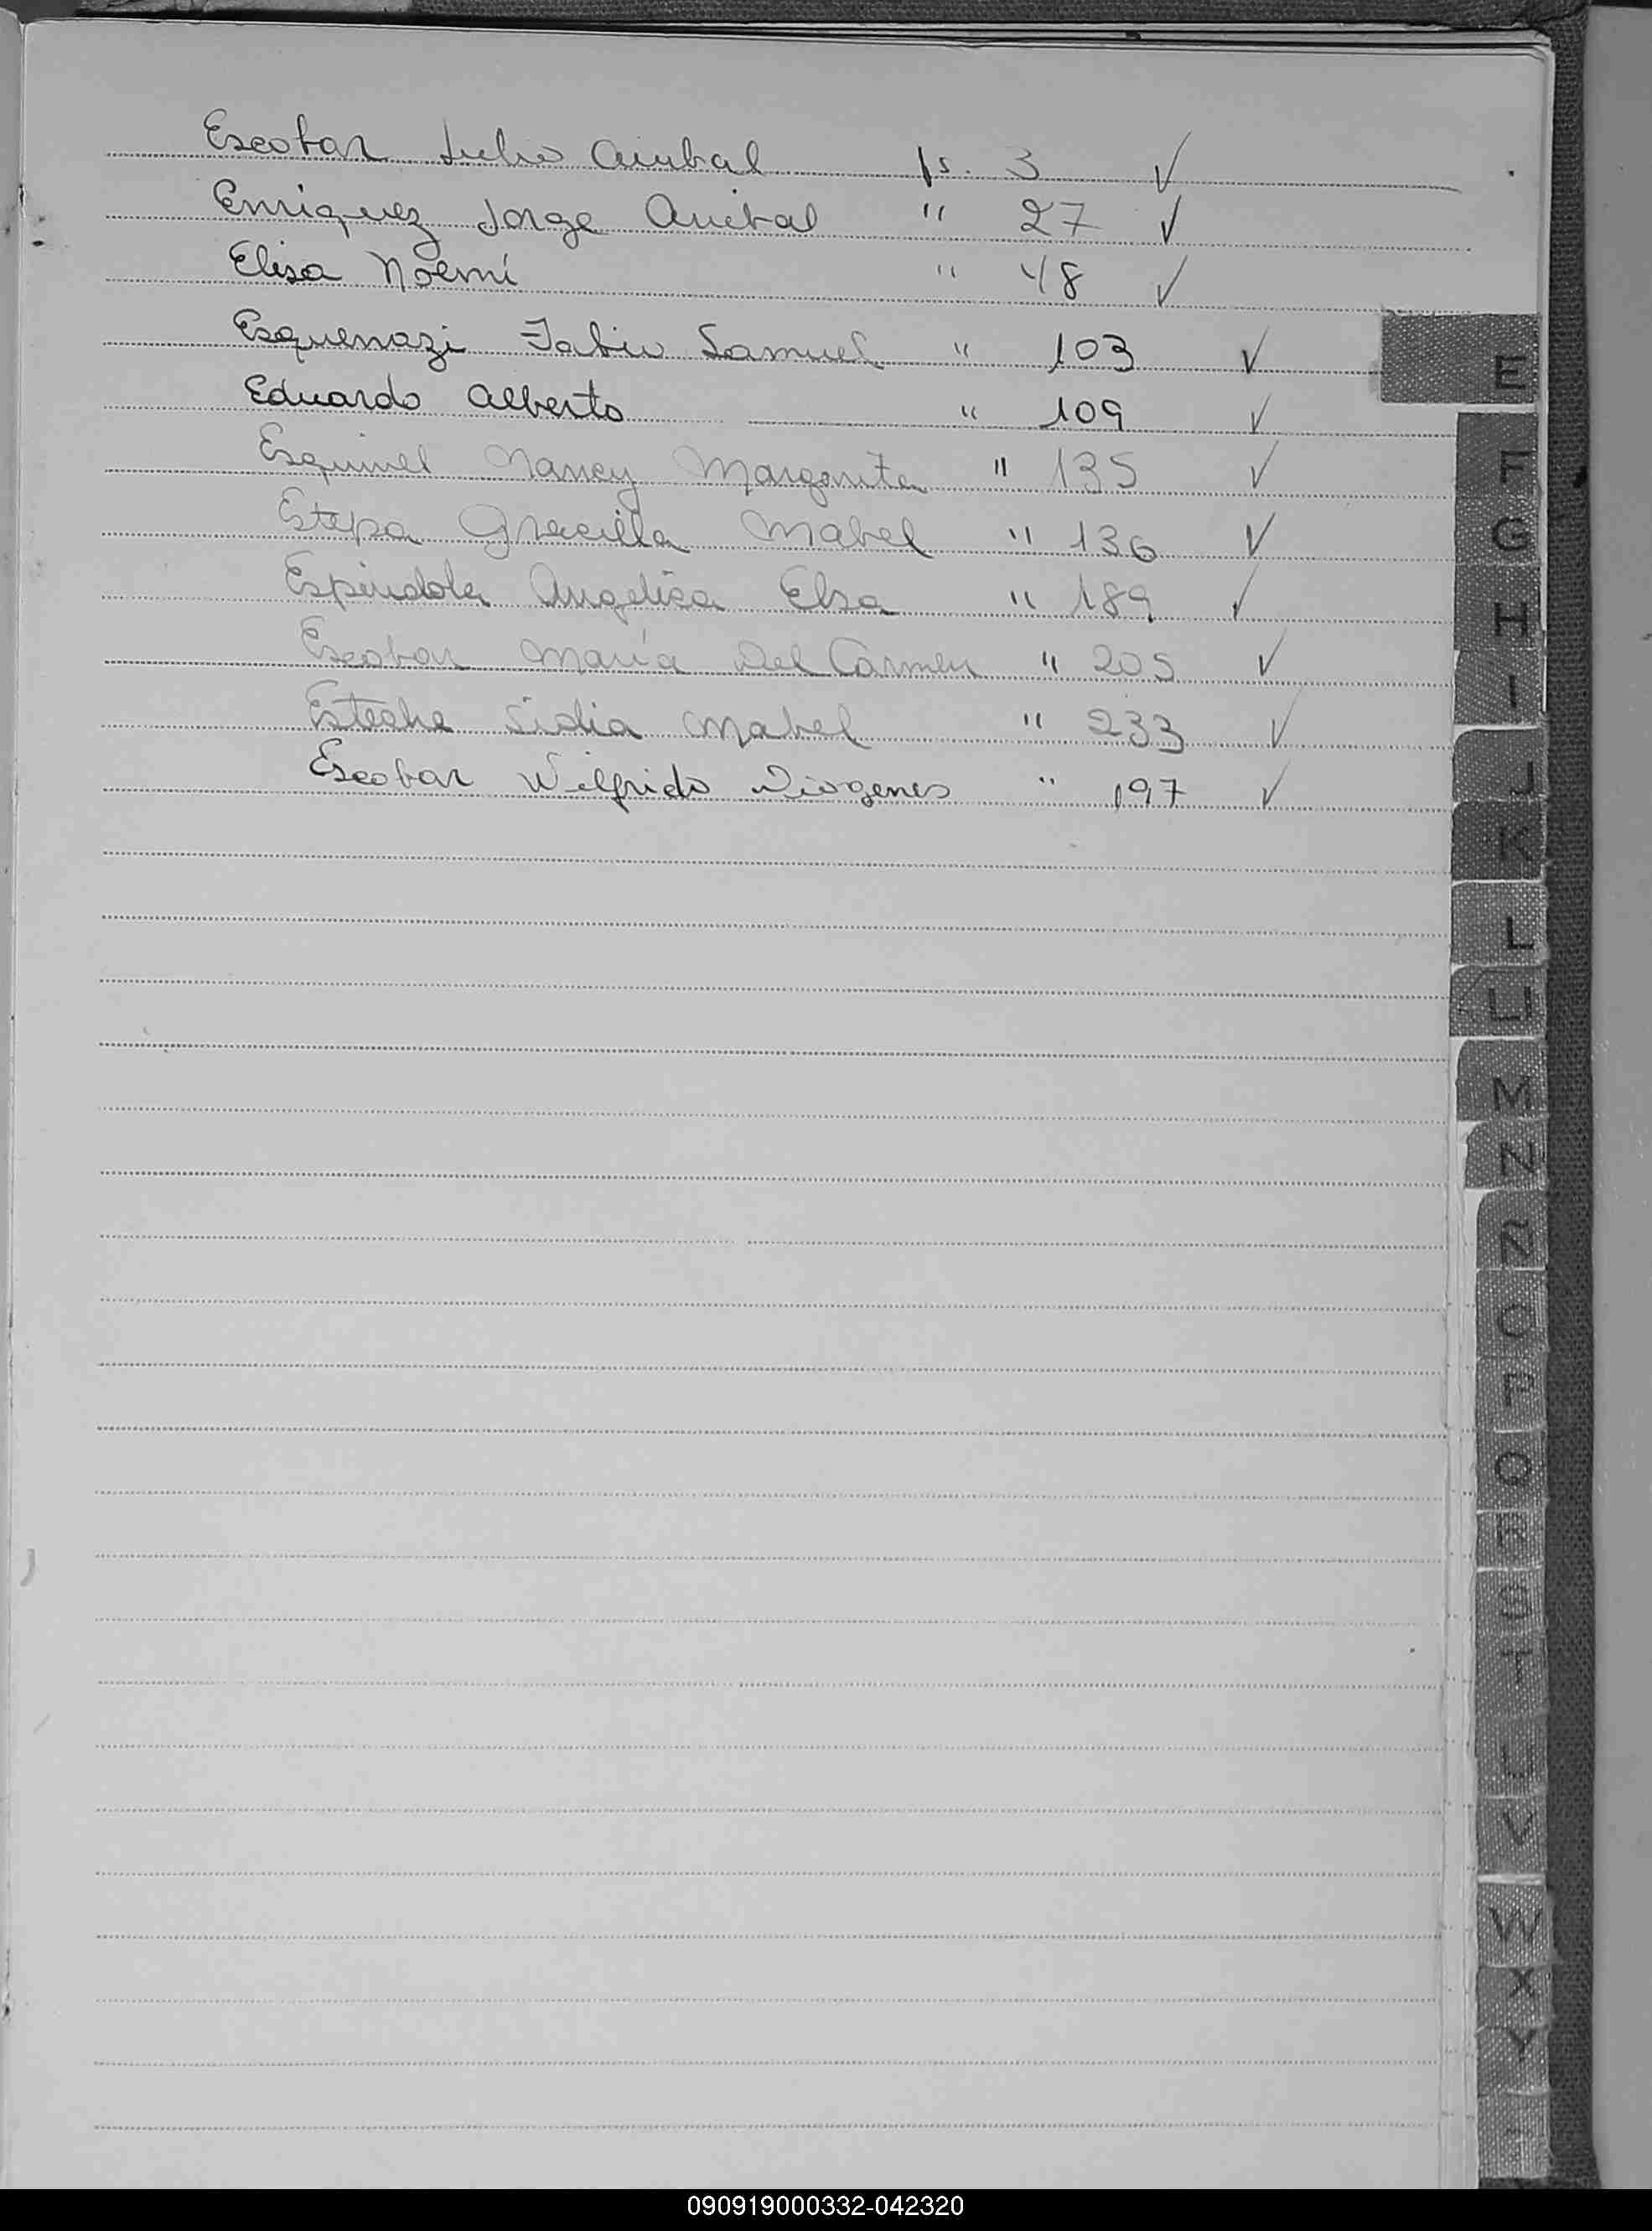 Escobar Julio Anibal fs. 3 ✓
Enriquez Jorge Anibal " 27 ✓
Elisa Noemí " 48 ✓
Esquenazi Fabio Samuel " 103 ✓
Eduardo Alberto " 109 ✓
Esquivel Nancy Margarita " 135 ✓
Estepa Graciela Mabel " 136 ✓
Espindola Angelica Elsa " 189 ✓
Escobar María Del Carmen " 205 ✓
Esteche Lidia Mabel " 233 ✓
Escobar Wilfrido Diogenes " 197 ✓
E
F
G
H
I
J
K
L
LL
M
N
Ñ
O
P
Q
R
S
T
U
V
W
X
Y
090919000332-042320